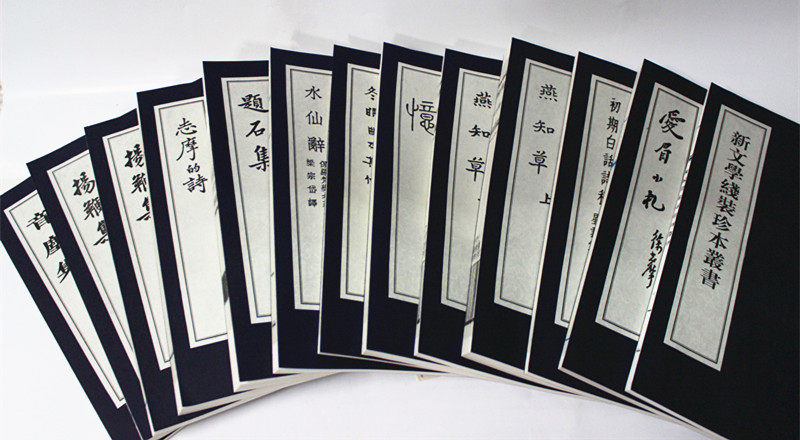 新文學綫裝珍本叢書
愛眉小札
徐志摩
初期白話詩稿
燕知草 上
燕知草
憶
冬眠曲及其他
水仙辭
保羅梵樂希
梁宗岱譯
題石集
志摩的詩
揚鞭集
揚鞭集
音塵集